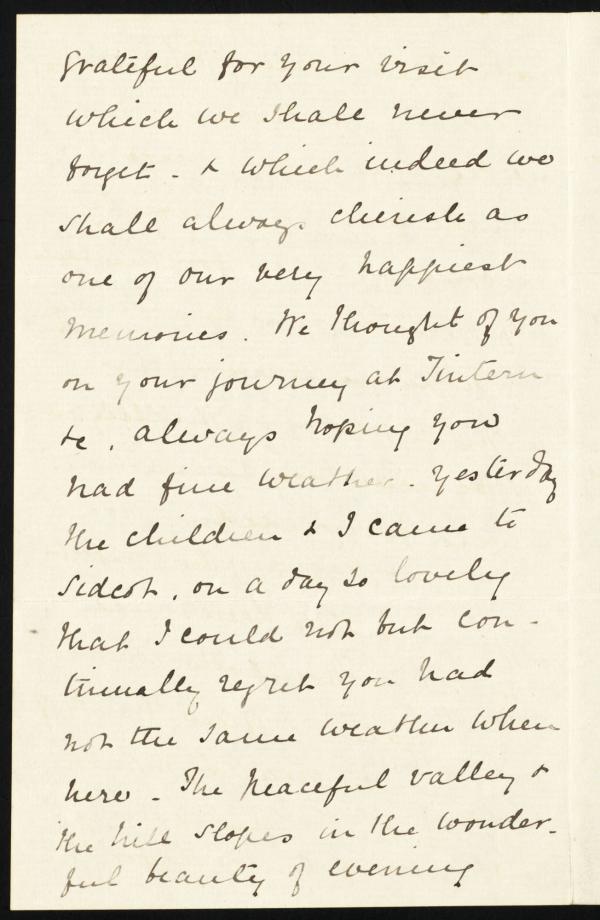 grateful for your visit
which we shall never
forget - & which indeed we
shall always cherish as
one of our very happiest
memories. We thought of you
on your journey at Tintern
&c, always hoping you
had fine weather. Yesterday
the children & I came to
Sidcot, on a day so lovely
that I could not but con-
tinually regret you had
not the same weather when
here - The peaceful valley &
the hill slopes in the wonder-
ful beauty of evening